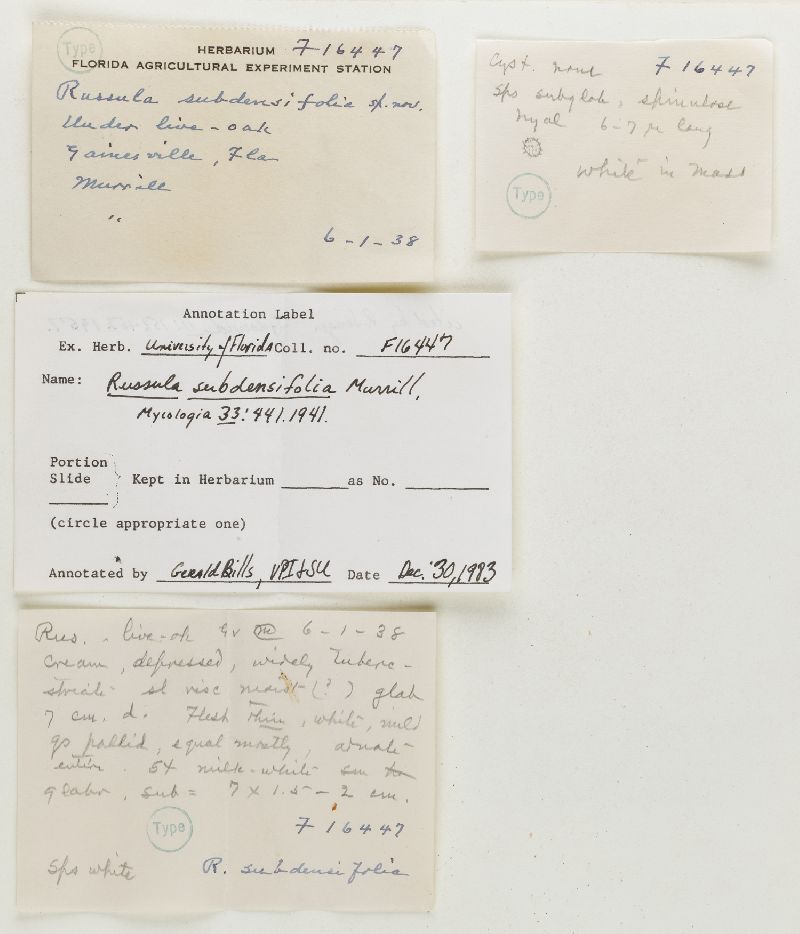 Type
HERBARIUM F 16447
FLORIDA AGRICULTURAL EXPERIMENT STATION
Russula subdensifolia sp. nov.
Under live-oak
Gainesville, Fla
Murrill
"
6-1-38
Cyst. none F 16447
Sps subglob, spinulose
hyal 6-7 µ long
white in mass
Type
Annotation Label
Ex. Herb. University of Florida Coll. no. F16447
Name: Russula subdensifolia Murrill,
Mycologia 33: 441. 1941.
Portion
Slide Kept in Herbarium as No.
(circle appropriate one)
Annotated by Gerald Bills, VPI & SU Date Dec. 30, 1983
Rus. - live-ok Gv 6-1-38
Cream, depressed, widely tuberc-
striate sl visc moist (?) glab
7 cm. d. Flesh thin, white, mild
gs pallid, equal mostly, adnate
entire. St milk-white
glabr, sub = 7 x 1.5-2 cm.
Type
F 16447
Sps white R. subdensifolia